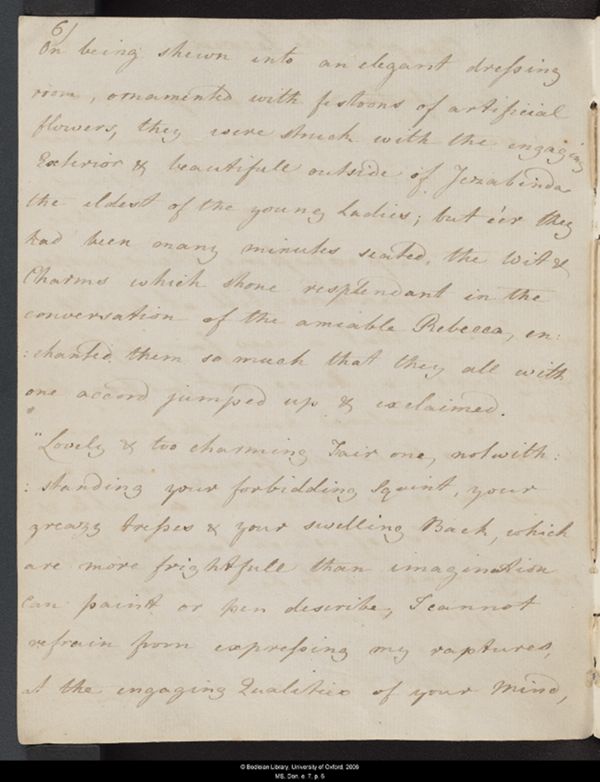 6/
On being shewn into an elegant dreſsing
room, ornamented with festoons of artificial
flowers, they were struck with the engaging
Exterior & beautifull outside of Jezabinda
the eldest of the young Ladies; but e'er they
had been many minutes seated, the Wit &
Charms which shone resplendant in the
conversation of the amiable Rebecca, en:
:chanted them so much that they all with
one accord jumped up & exclaimed.
"Lovely & too charming Fair one, notwith:
:standing your forbidding Squint, your
greazy treſses & your swelling Back, which
are more frightfull than imagination
can paint or pen describe, I cannot
refrain from expreſsing my raptures,
at the engaging Qualities of your Mind,
© Bodleian Library, University of Oxford, 2006
MS. Don. e. 7, p. 6